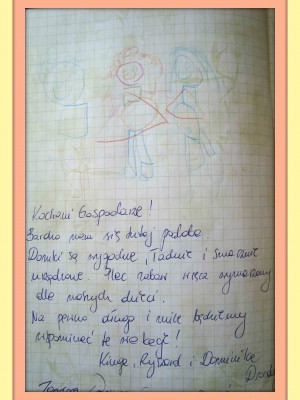 Kochani Gospodarze!
Bardzo nam się tutaj podoba
Domki są wygodne, ładnie i smacznie
urządzone. Plac zabaw wymarzony
dla naszych dzieci.
Na pewno długo i mile będziemy
wspominać te wakacje!
Kinga, Ryszard i Dominika